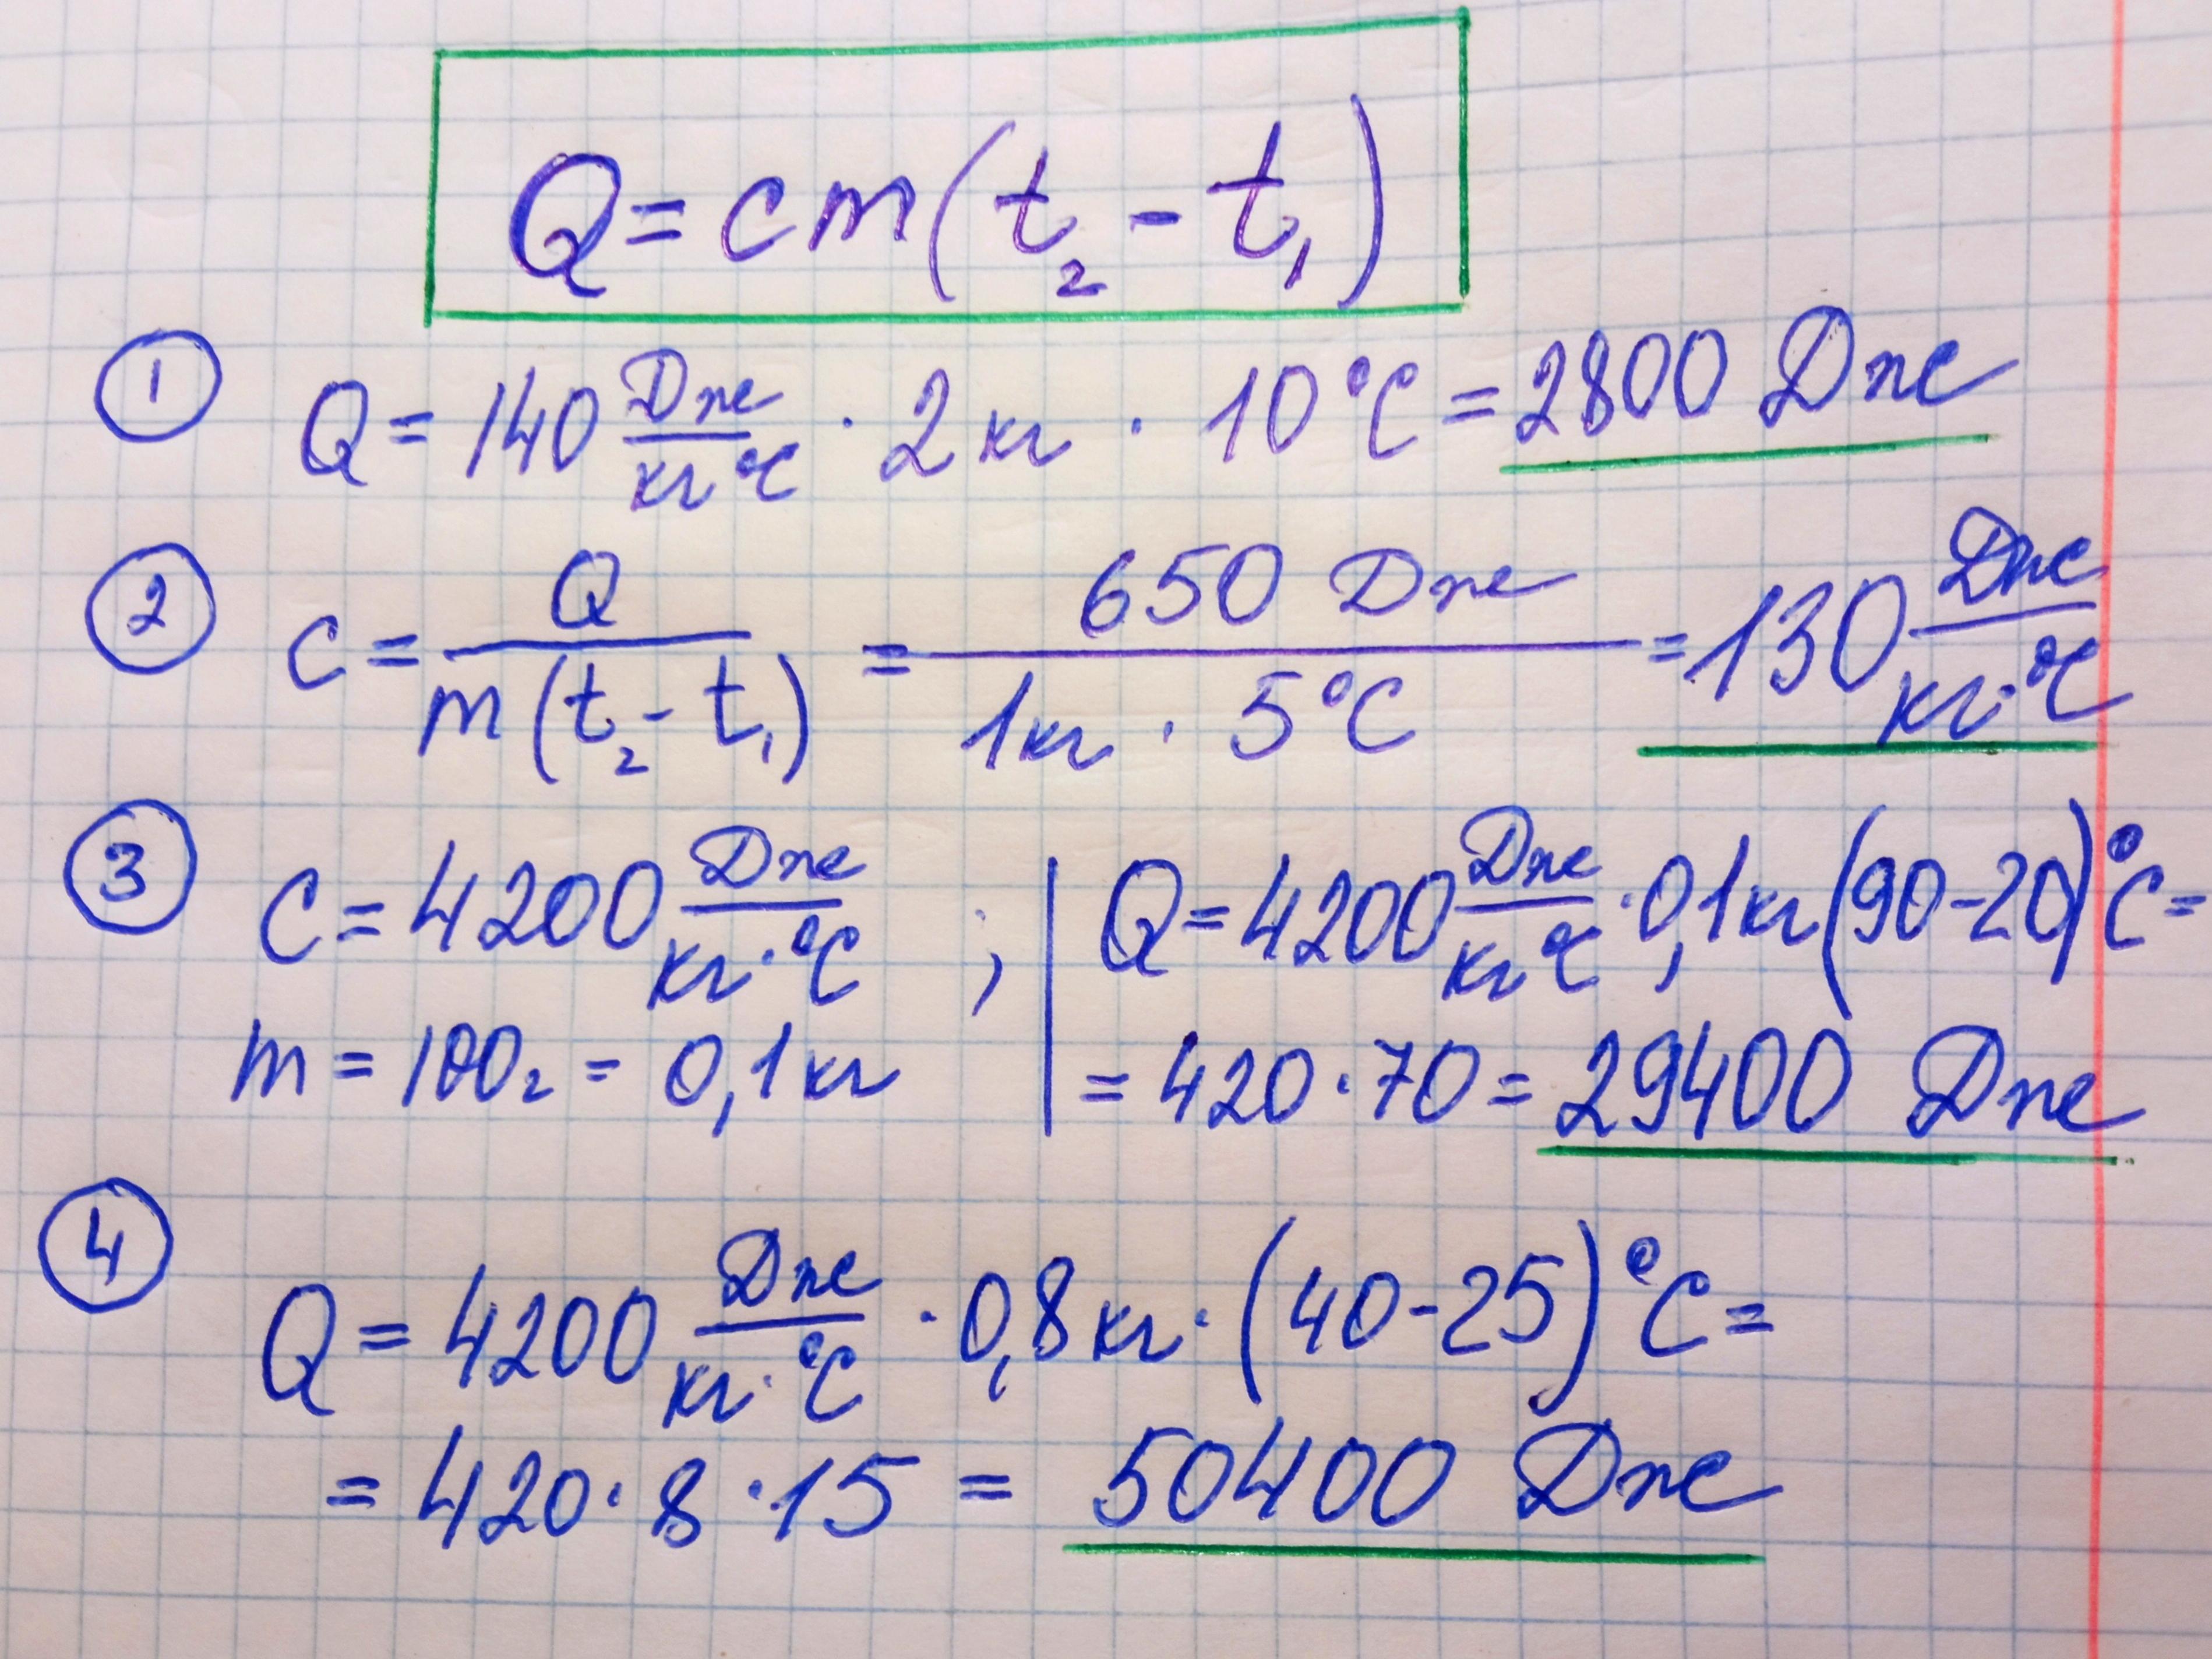 Q = cm(t₂ - t₁)
① Q = 140 Дж/кг °C · 2 кг · 10 °C = 2800 Дж
② c = Q/m(t₂ - t₁) = 650 Дж/1 кг · 5 °C = 130 Дж/кг · °C
③ C = 4200 Дж/кг · °C ;
m = 100 г = 0,1 кг
Q = 4200 Дж/кг °C · 0,1 кг (90 - 20) °C =
= 420 · 70 = 29400 Дж
④ Q = 4200 Дж/кг · °C · 0,8 кг · (40 - 25) °C =
= 420 · 8 · 15 = 50400 Дж